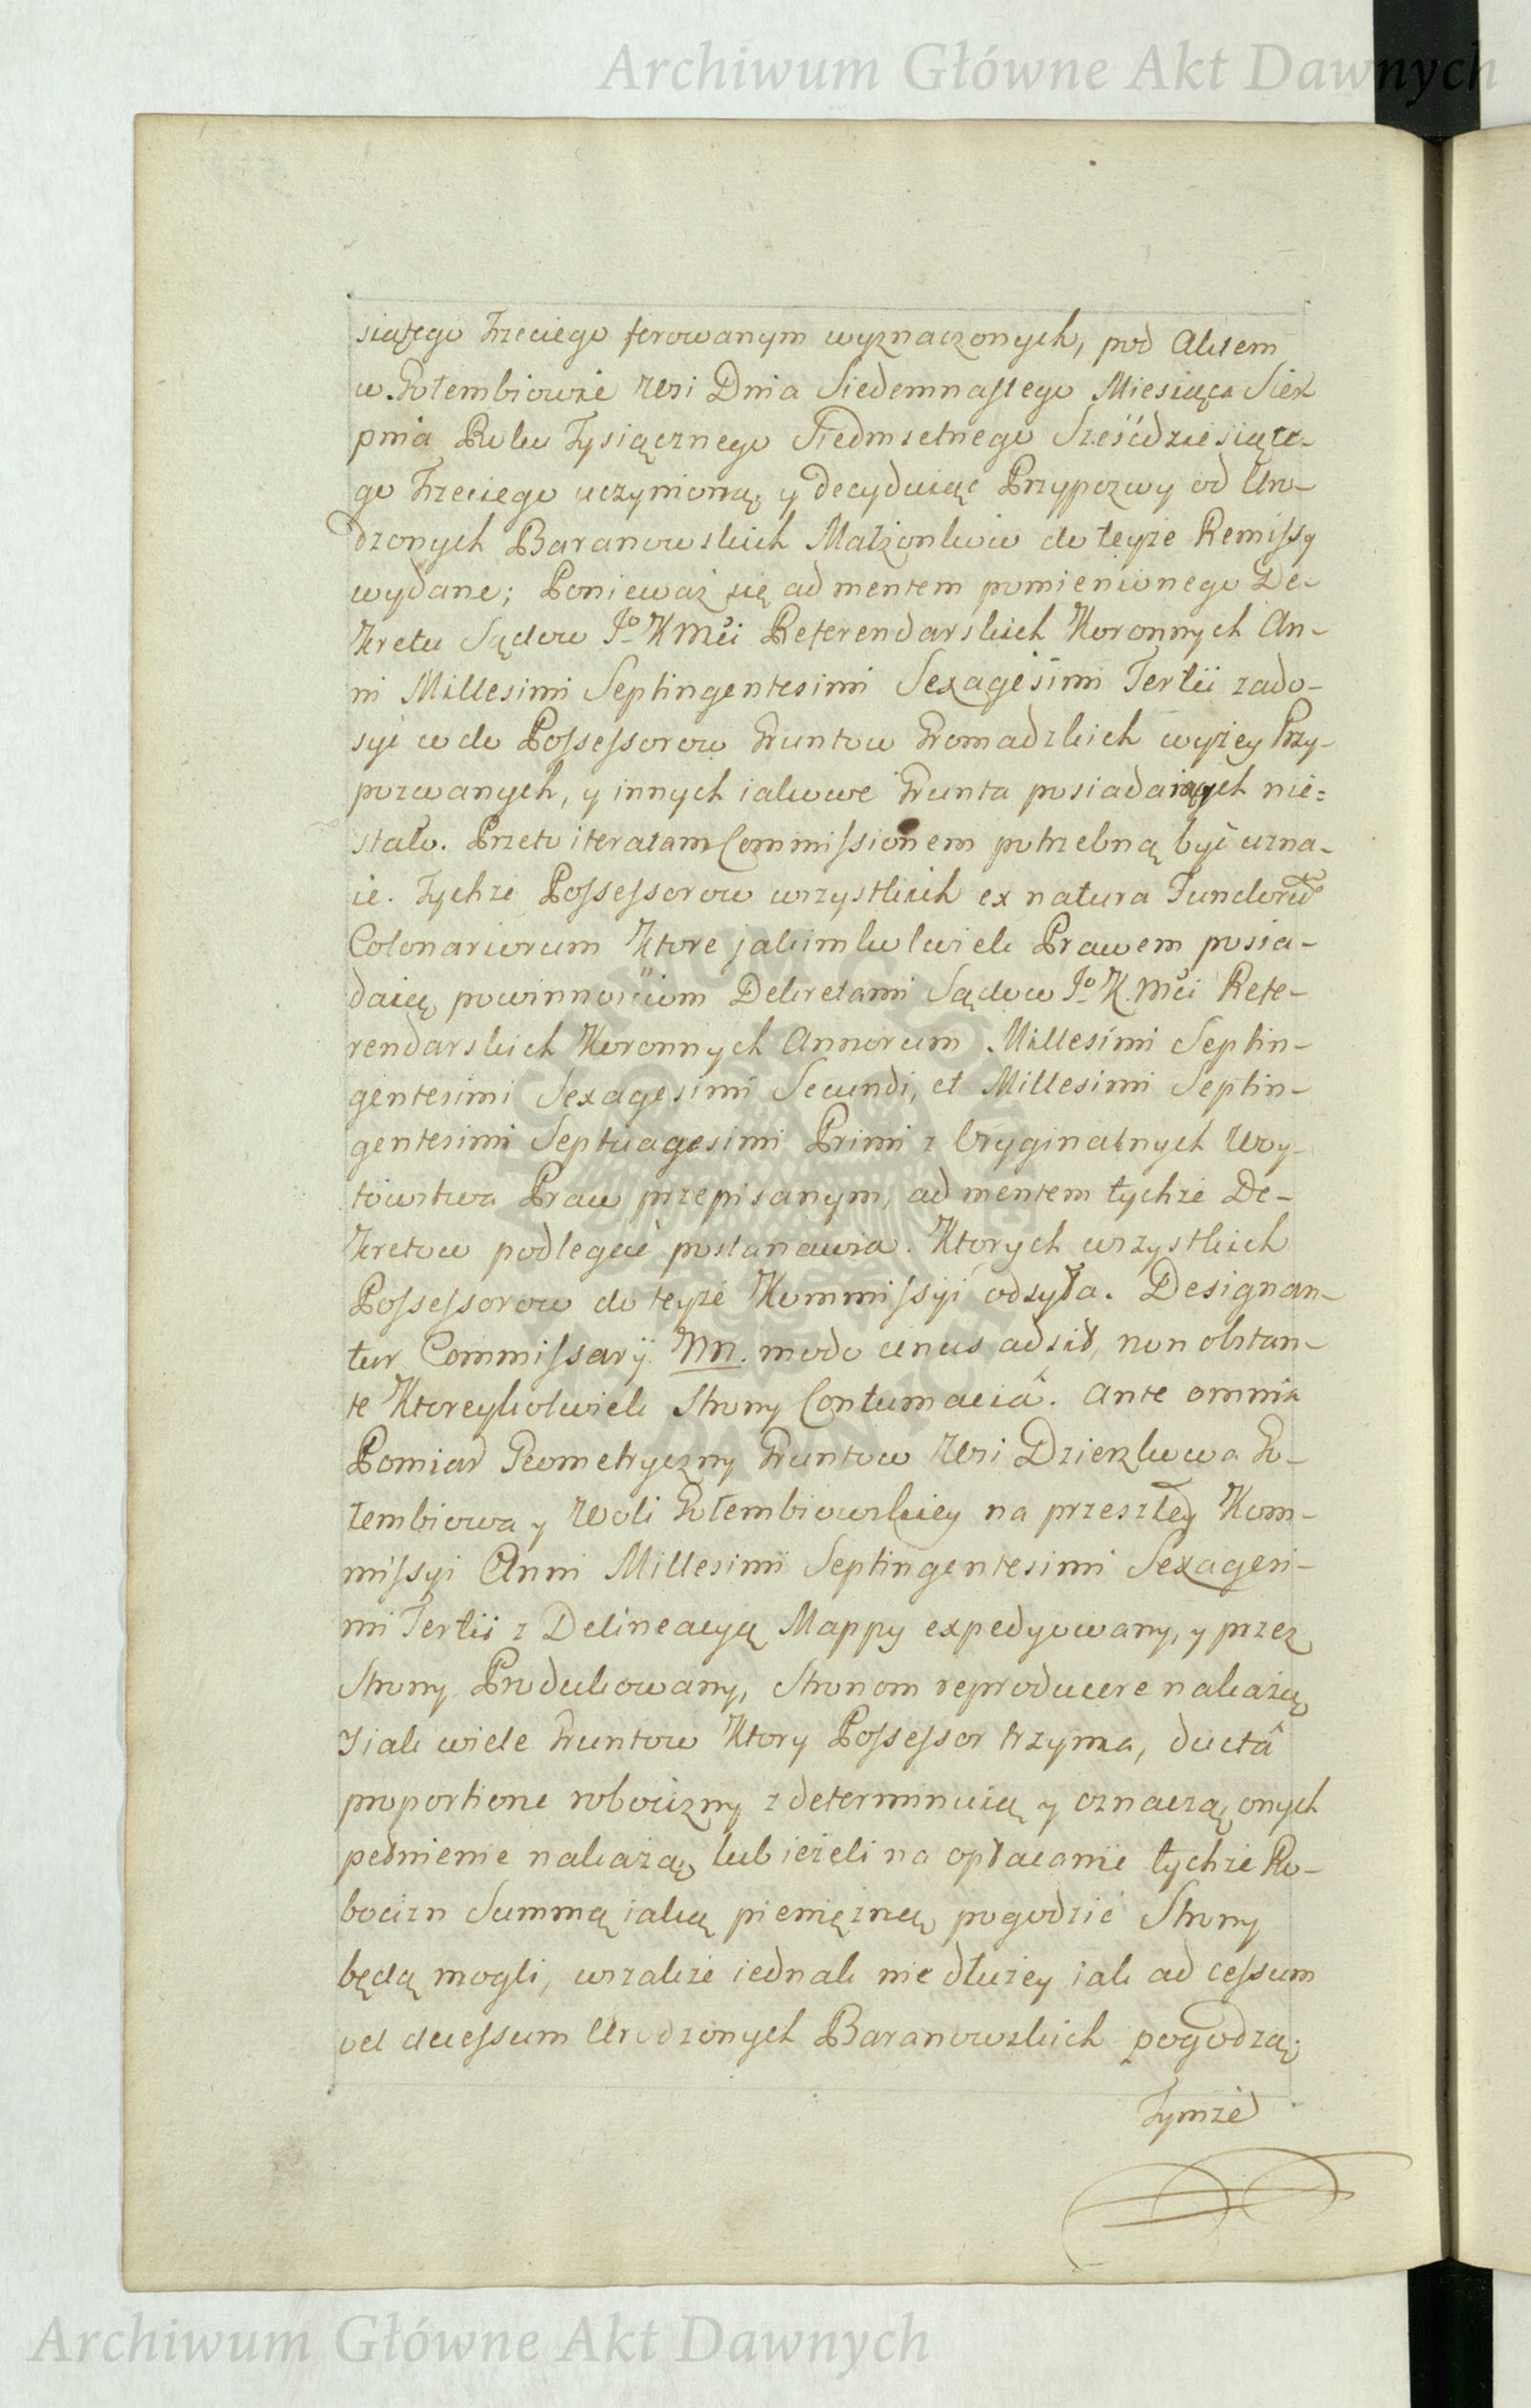 Archiwum Główne Akt Dawnych
siątego Trzeciego ferowanym wyznaczonych, pod Aktem
w Gołembiowie Wsi Dnia Siedemnastego Miesiąca Sier
pnia Roku Tysiącznego Siedmsetnego Sześćdziesiąte-
go Trzeciego uczynioną, y decyduiąc Przypozwy od Uro-
dzonych Baranowskich Małżonkow do teyże Remissy
wydane; Ponieważ się ad mentem pomienionego De-
kretu Sądow Jo KMci Referendarskich Koronnych An-
ni Millesimi Septingentesimi Sexagesimi Tertii zado-
syć w do Possessorow Gruntow Gromadzkich wyżey Przy-
pozwanych, y innych iakowe Grunta posiadaiących nie=
stało. Przeto iteratam Commissionem potrzebną być uzna-
ie. Tychże Possessorow wszystkich ex natura Fundorũ
Colonariorum Ktore jakimkolwiek Prawem posia-
daią, powinnościom Dekretami Sądow Jo K Mci Refe-
rendarskich Koronnych Annorum Millesimi Septin-
gentesimi Sexagesimi Secundi, et Millesimi Septin-
gentesimi Septuagesimi Primi z Oryginalnych Woy-
towstwa Praw przepisanym, ad mentem tychże De-
kretow podlegać postanawia. Ktorych wszystkich
Possessorow do teyże Kommissyi odsyła. Designan-
tur Commissarij NN. modo unus adsit, non obstan-
te Ktoreykolwiek Strony Contumaciâ. Ante omnia
Pomiar Geometryczny Gruntow Wsi Dzierzkowa Go-
łembiowa y Woli Gołembiowskiey na przeszłey Kom-
missyi Anni Millesimi Septingentesimi Sexagesi-
mi Tertii z Delineacyą Mappy expedyowany, y przez
Strony Produkowany, Stronom reproducere nakażą
Y iak wiele Gruntow Ktory Possessor trzyma, ductâ
proportione robocizny zdeterminuią y oznaczą, onych
pełnienie nakażą, lub ieżeli na opłacanie tychże Ro-
bocizn Summą iaką pieniężną, pogodzić Strony
będą mogli, wszakże iednak nie dłużey iak ad cessum
vel decessum Urodzonych Baranowskich pogodzą;
Tymże
Archiwum Główne Akt Dawnych